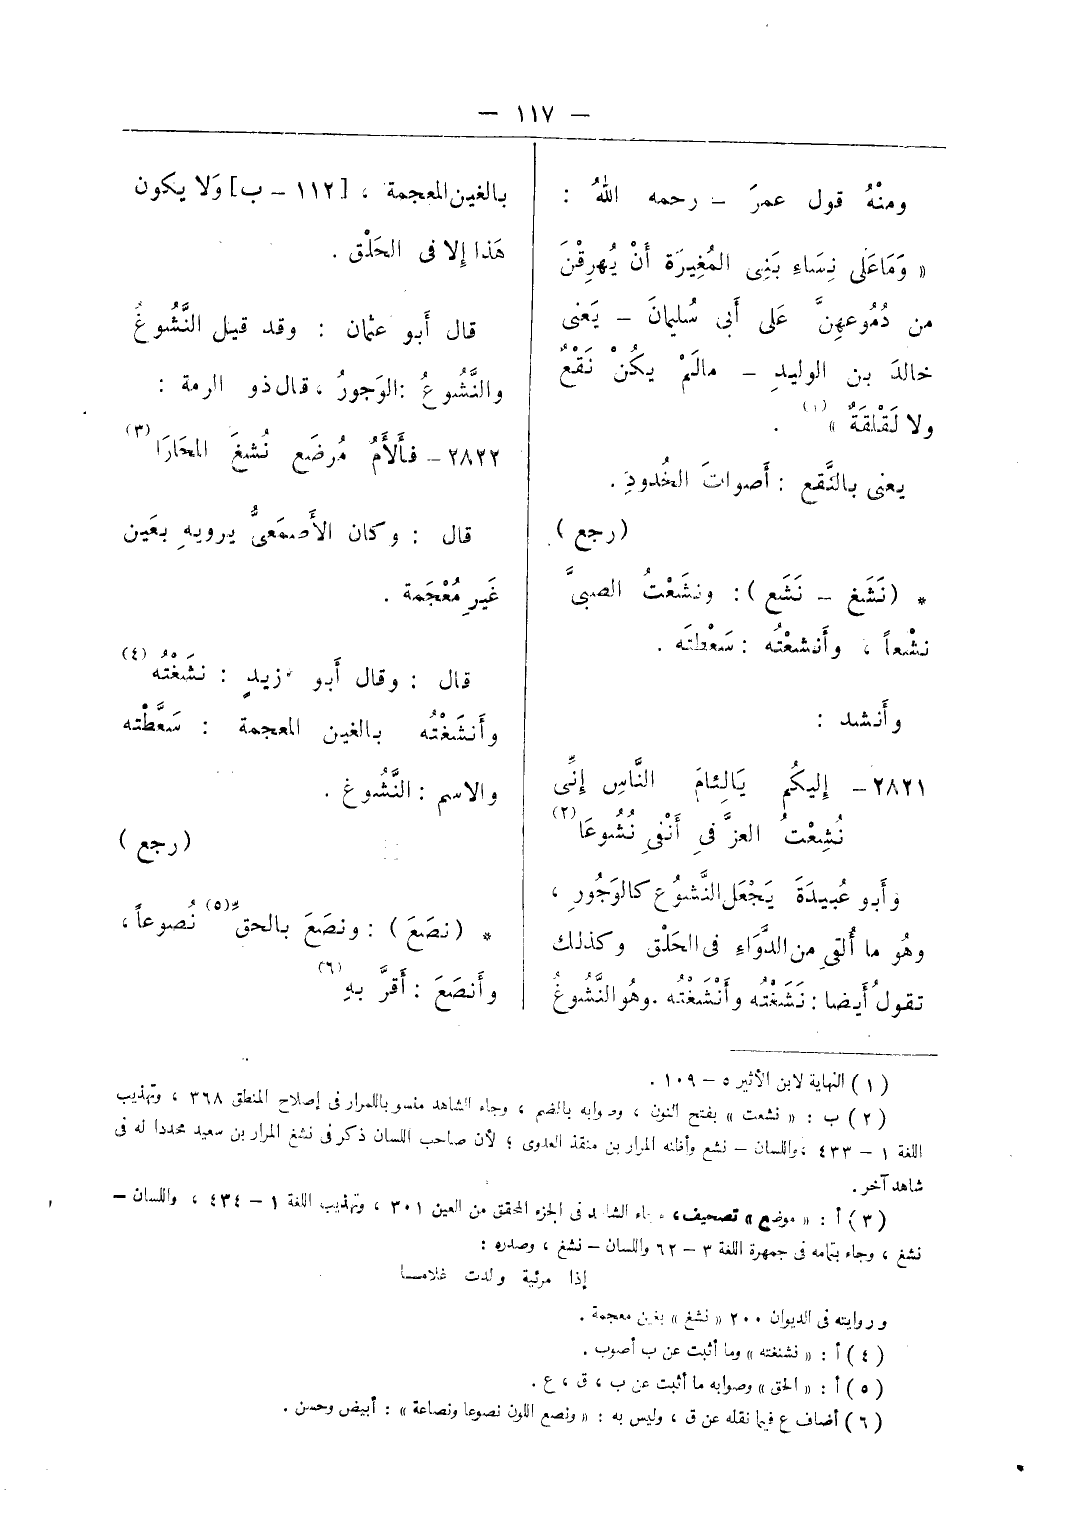 — ١١٧ —
ومنْهُ قول عمرَ – رحمه اللهُ :
« وَمَا عَلَى نِسَاءِ بَنِى المُغِيرَة أَنْ يُهرِقْنَ
من دُمُوعهِنَّ عَلَى أَبى سُليمانَ – يَعنى
خالدَ بن الوليدِ – مالَمْ يكُنْ نَقْعٌ
ولا لَقْلقَةٌ » (١) .
يعنى بالنَّقع : أَصواتَ الخُدودِ .
(رجع)
* (نَشَغ – نَشَع) : ونشَعْتُ الصبىَّ
نشْعاً ، وأَنشعْتُه : سَعْطتَه .
وأَنشد :
٢٨٢١ – إليكُم يَالِئامَ النَّاسِ إنِّى
نُشِعْتُ العزَّ فى أَنْفى نُشُوعَا (٢)
وأَبو عُبيدَةَ يَجْعَل النَّشُوُع كالوَجُورِ ،
وهُو ما أُلقى من الدَّوَاءِ فى الحَلْق وكذلك
تقولُ أَيضا : نَشَغْتُه وأَنْشَغْتُه . وهُو النَّشُوغُ
بالغين المعجمة ، [١١٢ – ب] وَلا يكون
هَذا إلا فى الحَلْق .
قال أَبو عثمان : وقد قيل النَّشُوغُ
والنَّشُوعُ : الوَجورُ ، قال ذو الرمة :
٢٨٢٢ – فأَلأَمُ مُرضَع نُشغَ المحَارَا (٣)
قال : وكان الأَصمَعىُّ يرويهِ بعَين
غَيرِ مُعْجَمة .
قال : وقال أَبو زيدٍ : نشَغْتُه (٤)
وأَنشَغْتُه بالغين المعجمة : سَعَّطْته
والاسم : النَّشُوغ .
(رجع)
* (نصَعَ) : ونصَعَ بالحقِّ (٥) نُصوعاً ،
وأَنصَعَ : أَقرَّ بهِ (٦)
(١) النهاية لابن الأثير ٥ – ١٠٩ .
(٢) ب : « نشعت » بفتح النون ، وصوابه بالضم ، وجاء الشاهد منسوبا للمرار فى إصلاح المنطق ٣٦٨ ، وتهذيب
اللغة ١ – ٤٣٣ ، واللسان – نشع وأظنه المرار بن منقذ العدوى ؛ لأن صاحب اللسان ذكر فى نشغ المرار بن سعيد محددا له فى
شاهد آخر .
(٣) أ : « موضع » تصحيف ، جاء الشاهد فى الجزء المحقق من العين ٣٠١ ، وتهذيب اللغة ١ – ٤٣٤ ، واللسان –
نشغ ، وجاء بتمامه فى جمهرة اللغة ٣ – ٦٢ واللسان – نشغ ، وصدره :
إذا مرئية ولدت غلاما
وروايته فى الديوان ٢٠٠ « نشغ » بغين معجمة .
(٤) أ : « نشنغته » وما أثبت عن ب أصوب .
(٥) أ : « الحق » وصوابه ما أثبت عن ب ، ق ، ع .
(٦) أضاف ع فيما نقله عن ق ، وليس به : « ونصع اللون نصوعا ونصاعة » : أبيض وحسن .